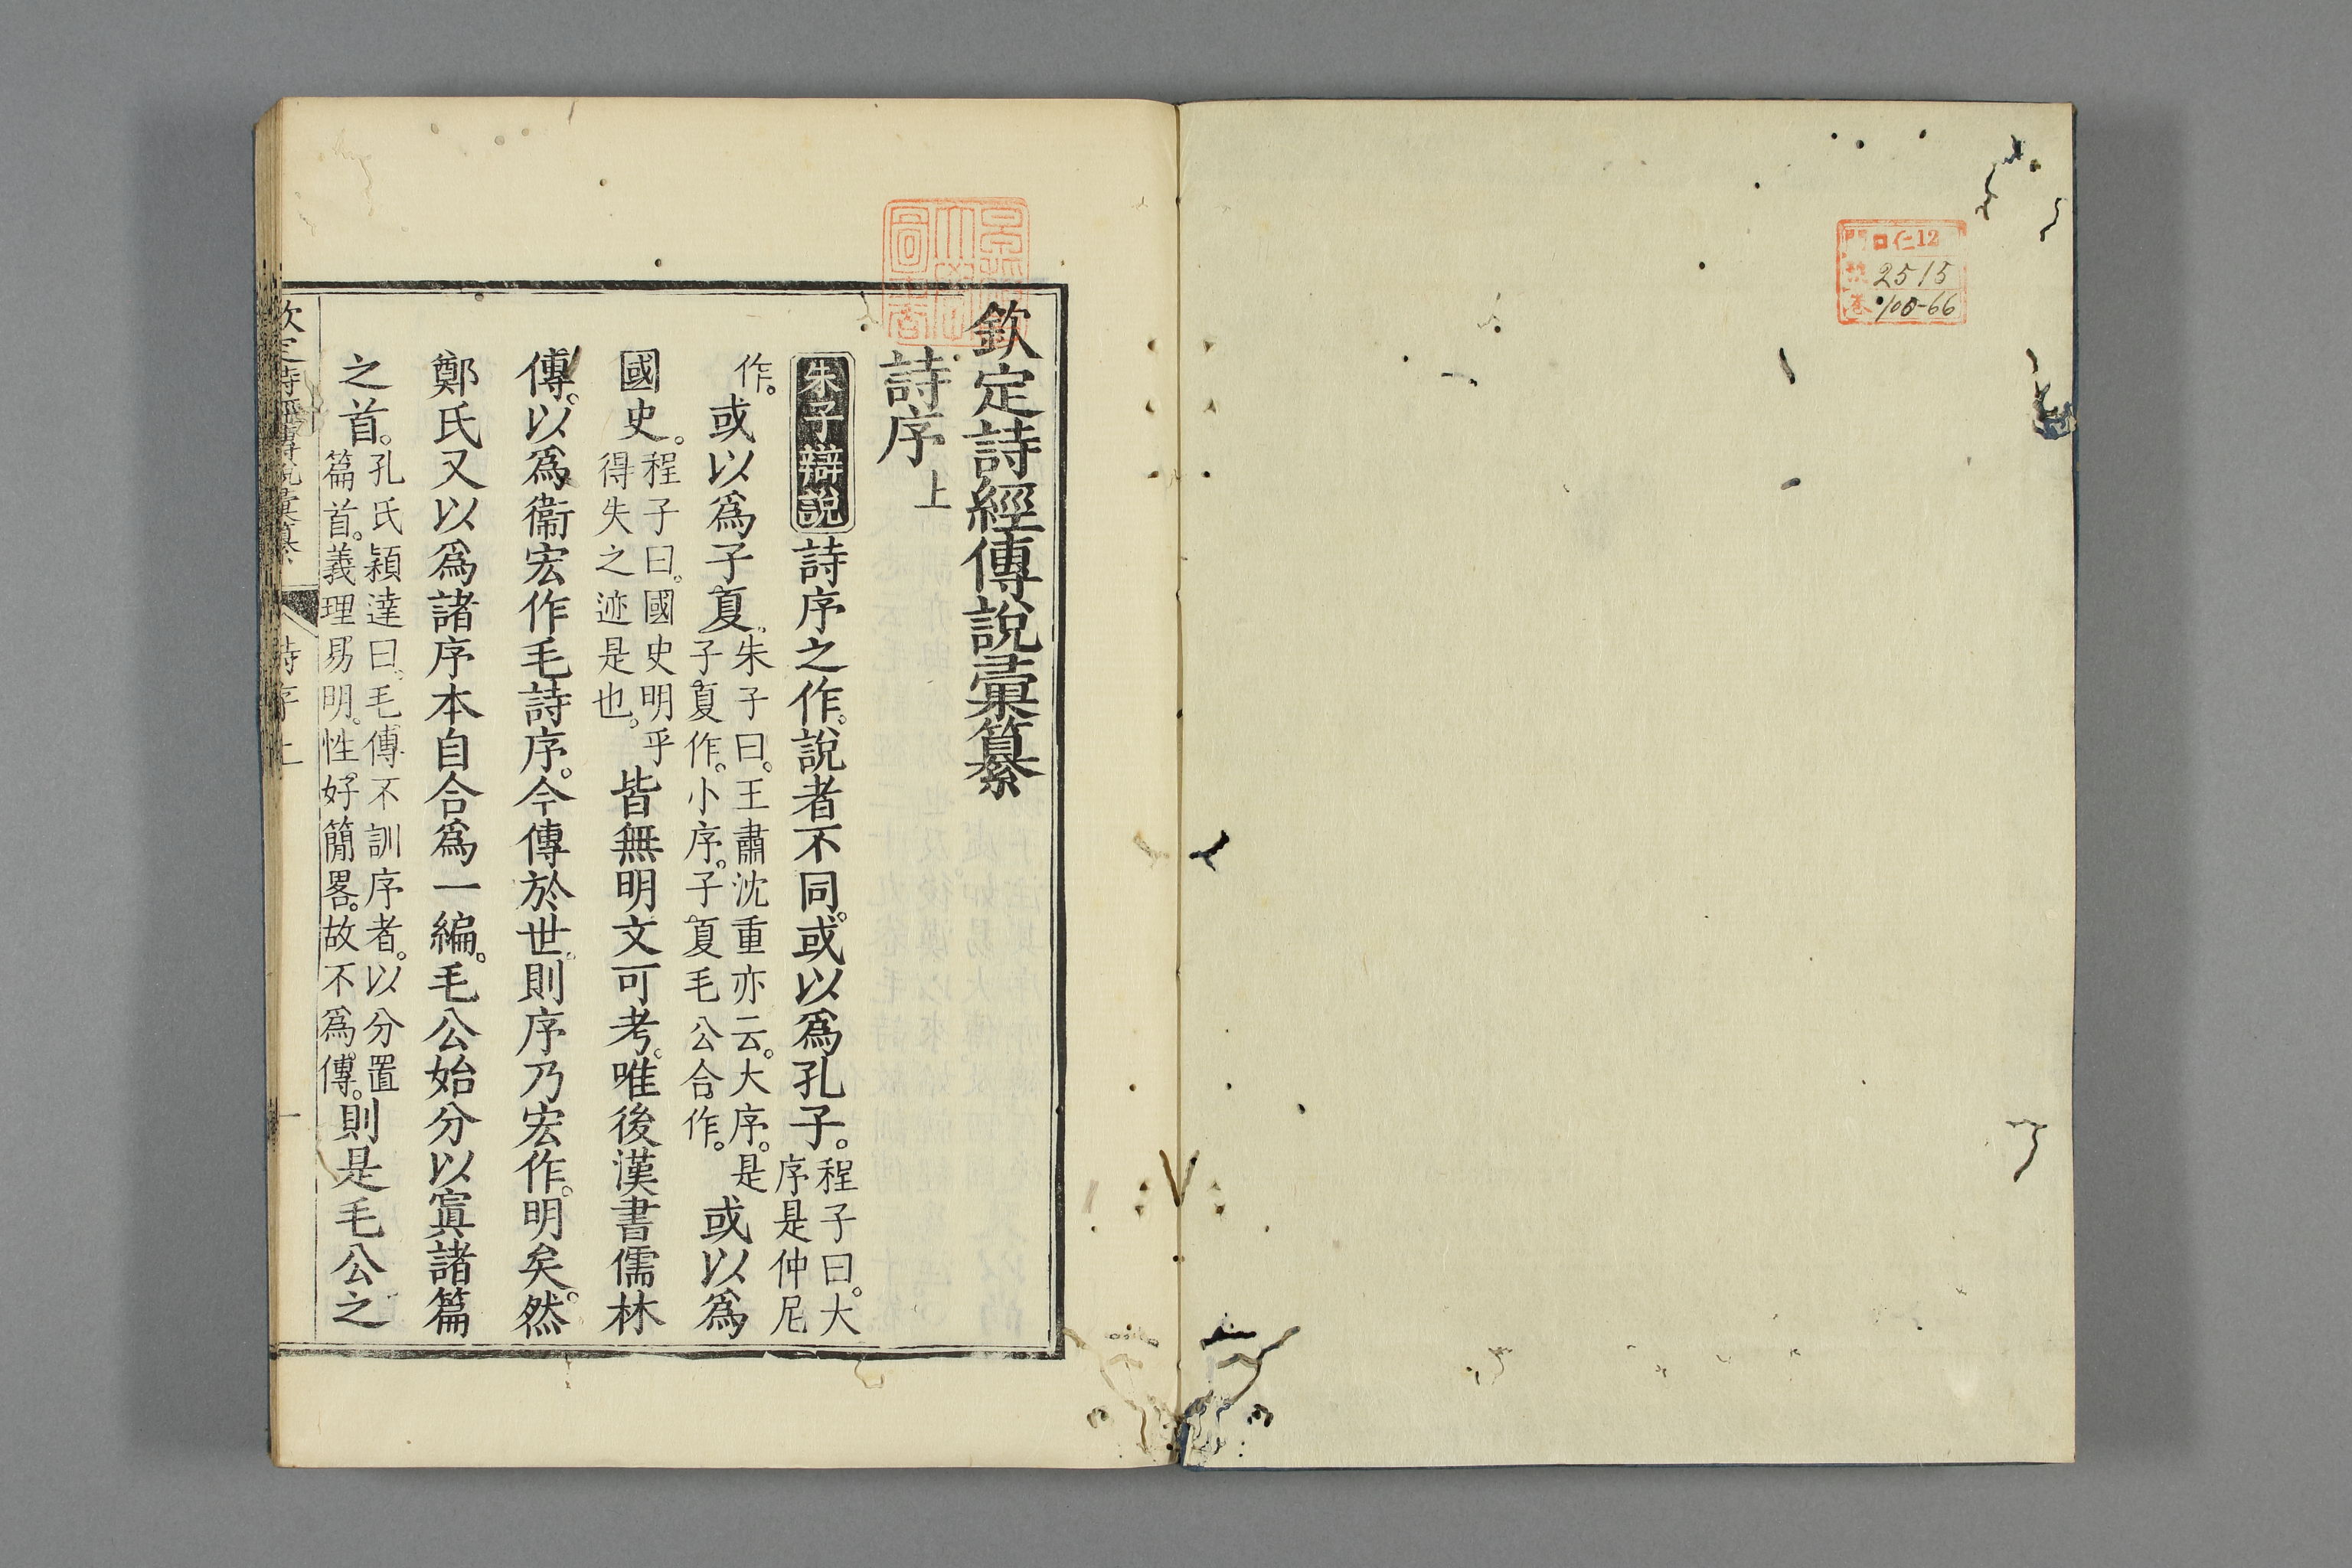 門 口仁12
號 2515
卷 100-66
欽定詩經傳說彙纂
詩序上
朱子辯說詩序之作。說者不同。或以爲孔子。程子曰。大序是仲尼
作。或以爲子夏。朱子曰。王肅沈重亦云。大序。是子夏作。小序。子夏毛公合作。或以爲
國史。程子曰。國史明乎得失之迹是也。皆無明文可考。唯後漢書儒林
傳。以爲衞宏作毛詩序。今傳於世。則序乃宏作。明矣。然
鄭氏又以爲諸序本自合爲一編。毛公始分以寘諸篇
之首。孔氏穎達曰。毛傳不訓序者。以分置篇首。義理易明。性好簡畧。故不爲傳。則是毛公之
欽定詩經傳說彙纂 詩序上 一